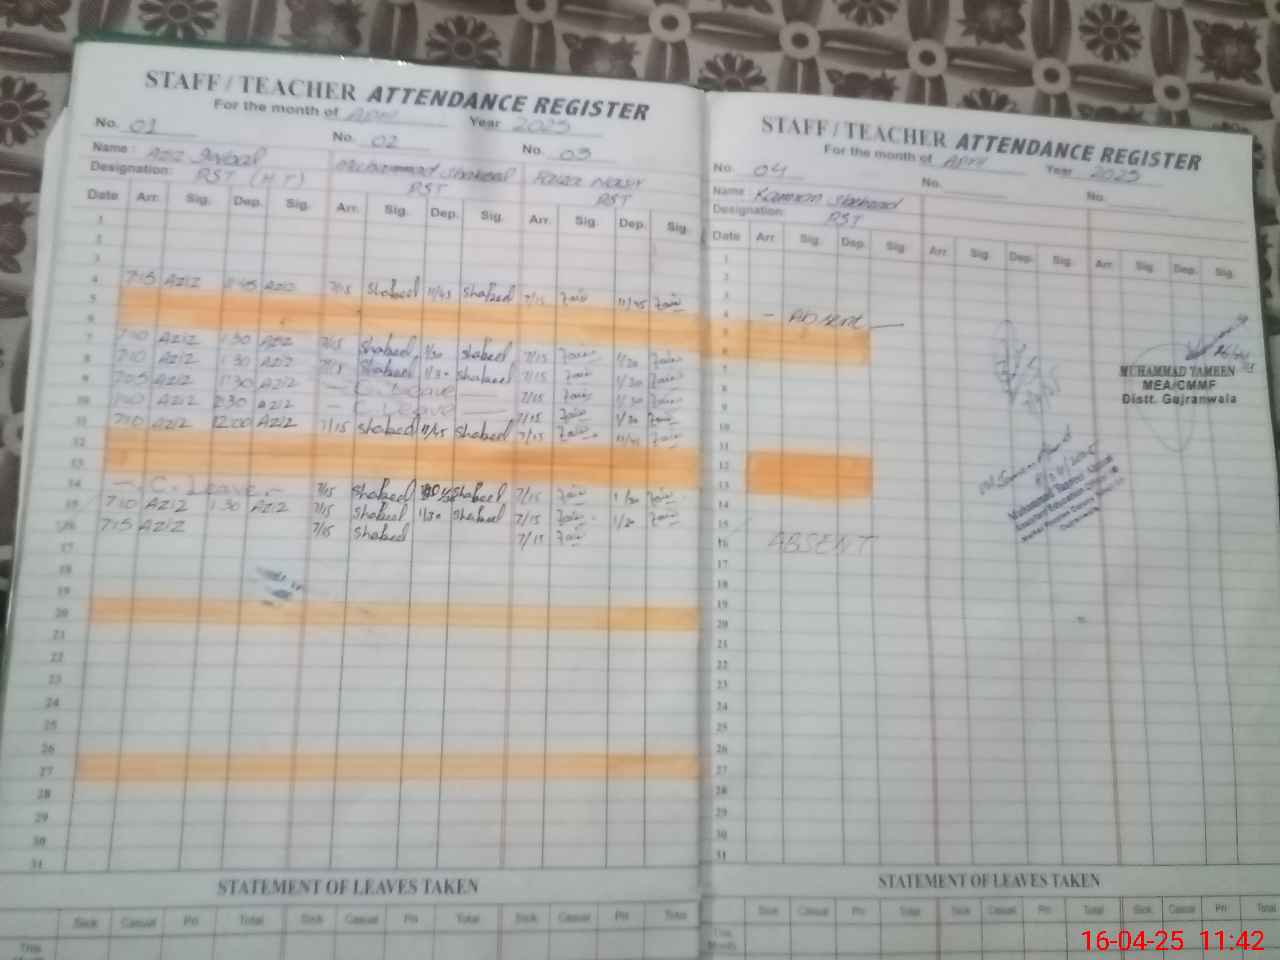 STAFF / TEACHER ATTENDANCE REGISTER
For the month of April Year 2025
No. 01 No. 02 No. 03
Name: Aziz Muhammad Shakeel
Designation: RST (H.T) RST RST
Date Arr. Sig. Dep. Sig. Arr. Sig. Dep. Sig. Arr. Sig. Dep. Sig.
1
2
3
4 7:15 AZIZ 11:45 AZIZ 7/15 Shakeel 11/45 Shakeel 7/15 Zain 11/45 Zain
5
6
7 7:10 AZIZ 1:30 AZIZ 7/15 Shakeel 1/30 Shakeel 7/15 Zain 1/30 Zain
8 7:10 AZIZ 1:30 AZIZ 7/15 Shakeel 1/30 Shakeel 7/15 Zain 1/30 Zain
9 7:05 AZIZ 1:30 AZIZ - C. Leave - 7/15 Zain 1/30 Zain
10 AZIZ AZIZ - C. Leave - 7/15 Zain 1/30 Zain
11 7:10 AZIZ 12:00 AZIZ 7/15 Shakeel 11/45 Shakeel 7/15 Zain 11/45 Zain
12
13
14 - C. Leave - 7/15 Shakeel Shakeel 7/15 Zain 1/30 Zain
15 7:10 AZIZ 1:30 AZIZ 7/15 Shakeel 1/30 Shakeel 7/15 Zain 1/30 Zain
16 7:15 AZIZ 7/15 Shakeel 7/15 Zain
17
18
19
20
21
22
23
24
25
26
27
28
29
30
31
STATEMENT OF LEAVES TAKEN
Sick Casual Pri Total Sick Casual Pri Total Sick Casual Pri Total
This Month
STAFF / TEACHER ATTENDANCE REGISTER
For the month of April Year 2025
No. 04 No. No.
Name: Kamran Shehzad
Designation: RST
Date Arr. Sig. Dep. Sig. Arr. Sig. Dep. Sig. Arr. Sig. Dep. Sig.
1
2
3
4 - Absent -
5
6
7
8
9
10
11
12
13
14
15
16 ABSENT
17
18
19
20
21
22
23
24
25
26
27
28
29
30
31
MUHAMMAD TAMEEN
MEA/CMMF
Distt. Gujranwala
STATEMENT OF LEAVES TAKEN
Sick Casual Pri Total Sick Casual Pri Total Sick Casual Pri Total
This Month
16-04-25 11:42